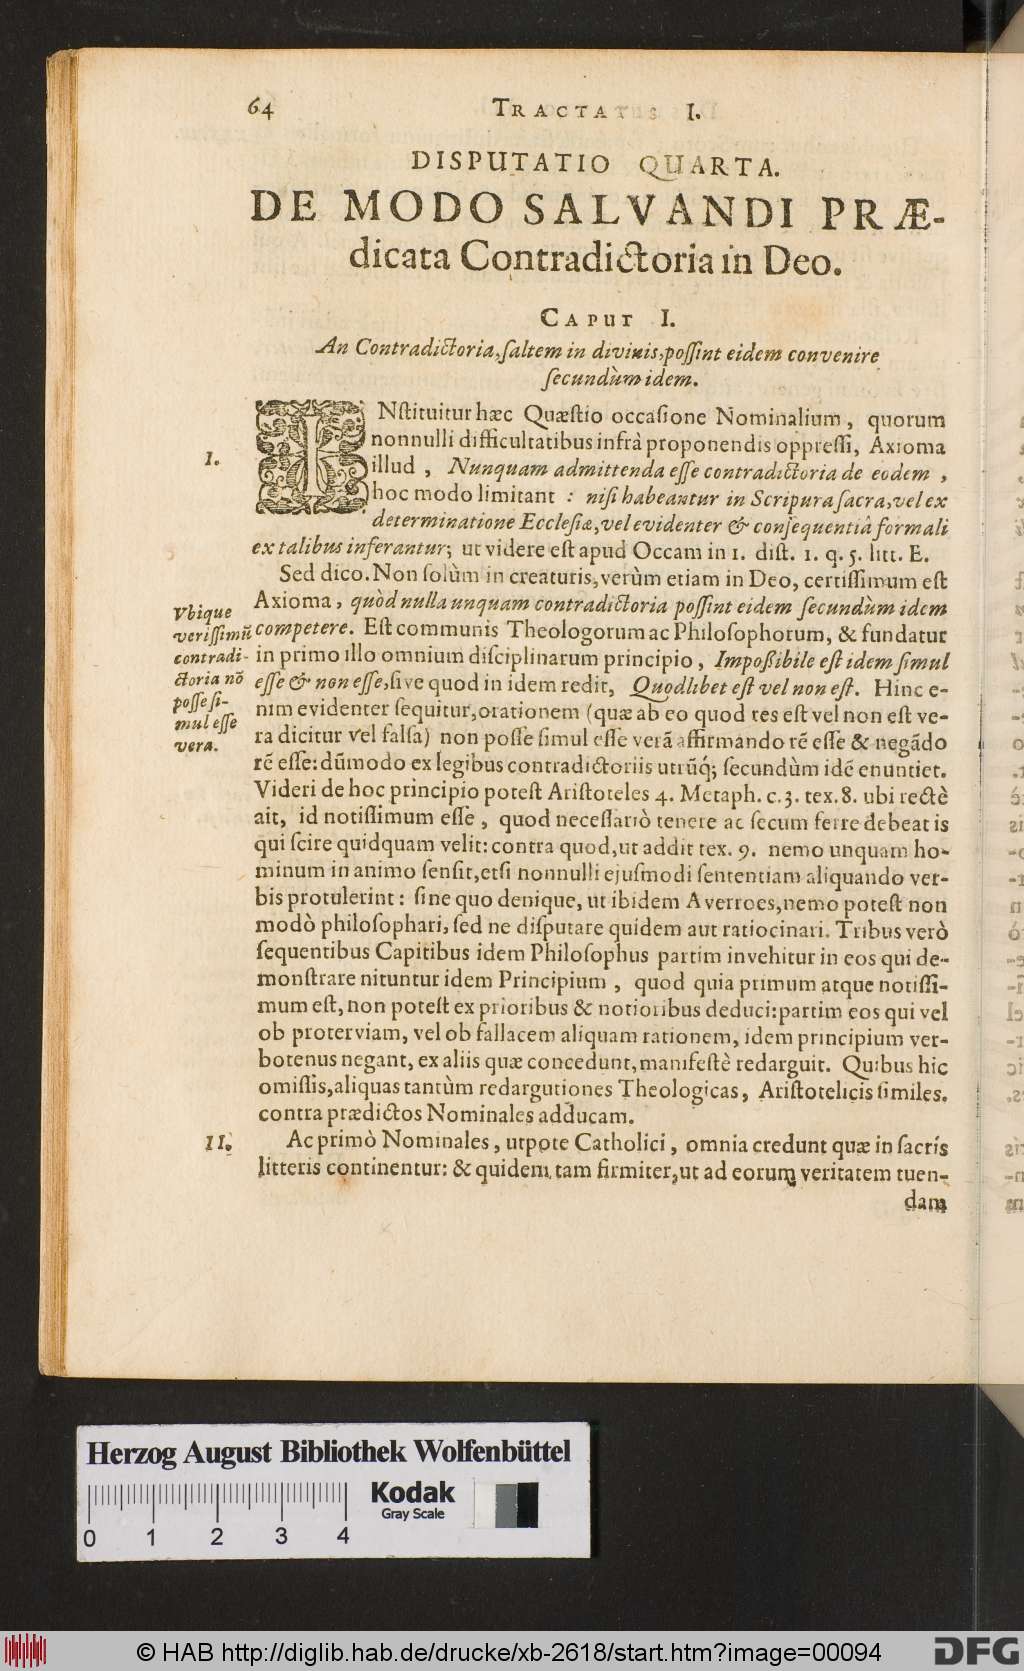 64 TRACTATUS I.
DISPUTATIO QUARTA.
DE MODO SALVANDI PRÆ-
dicata Contradictoria in Deo.
CAPUT I.
An Contradictoria, ſaltem in divinis, poſſint eidem convenire
ſecundùm idem.
I.
INſtituitur hæc Quæſtio occaſione Nominalium, quorum
nonnulli difficultatibus infrà proponendis oppreſſi, Axioma
illud, Nunquam admittenda eſſe contradictoria de eodem,
hoc modo limitant: niſi habeantur in Scripura ſacra, vel ex
determinatione Eccleſiæ, vel evidenter & conſequentiâ formali
ex talibus inferantur; ut videre eſt apud Occam in 1. diſt. 1. q. 5. litt. E.
Sed dico. Non ſolùm in creaturis, verùm etiam in Deo, certiſſimum eſt
Axioma, quòd nulla unquam contradictoria poſſint eidem ſecundùm idem
competere. Eſt communis Theologorum ac Philoſophorum, & fundatur
in primo illo omnium diſciplinarum principio, Impoßibile eſt idem ſimul
eſſe & non eſſe, ſive quod in idem redit, Quodlibet eſt vel non eſt. Hinc e-
nim evidenter ſequitur, orationem (quæ ab eo quod res eſt vel non eſt ve-
ra dicitur vel falſa) non poſſe ſimul eſſe verã affirmando rẽ eſſe & negãdo
rẽ eſſe: dũmodo ex legibus contradictoriis utrũq́; ſecundùm idẽ enuntiet.
Videri de hoc principio poteſt Ariſtoteles 4. Metaph. c. 3. tex. 8. ubi rectè
ait, id notiſſimum eſſe, quod neceſſariò tenere ac ſecum ferre debeat is
qui ſcire quidquam velit: contra quod, ut addit tex. 9. nemo unquam ho-
minum in animo ſenſit, etſi nonnulli ejuſmodi ſententiam aliquando ver-
bis protulerint: ſine quo denique, ut ibidem Averroes, nemo poteſt non
modò philoſophari, ſed ne diſputare quidem aut ratiocinari. Tribus verò
ſequentibus Capitibus idem Philoſophus partim invehitur in eos qui de-
monſtrare nituntur idem Principium, quod quia primum atque notiſſi-
mum eſt, non poteſt ex prioribus & notioribus deduci: partim eos qui vel
ob proterviam, vel ob fallacem aliquam rationem, idem principium ver-
botenus negant, ex aliis quæ concedunt, manifeſtè redarguit. Quibus hic
omiſſis, aliquas tantùm redargutiones Theologicas, Ariſtotelicis ſimiles.
contra prædictos Nominales adducam.
Vbique
veriſſimũ
contradi-
ctoria nõ
poſſe ſi-
mul eſſe
vera.
II.
Ac primò Nominales, utpote Catholici, omnia credunt quæ in ſacris
litteris continentur: & quidem tam firmiter, ut ad eorum veritatem tuen-
dam
Herzog August Bibliothek Wolfenbüttel
Kodak
Gray Scale
0 1 2 3 4
© HAB http://diglib.hab.de/drucke/xb-2618/start.htm?image=00094
DFG